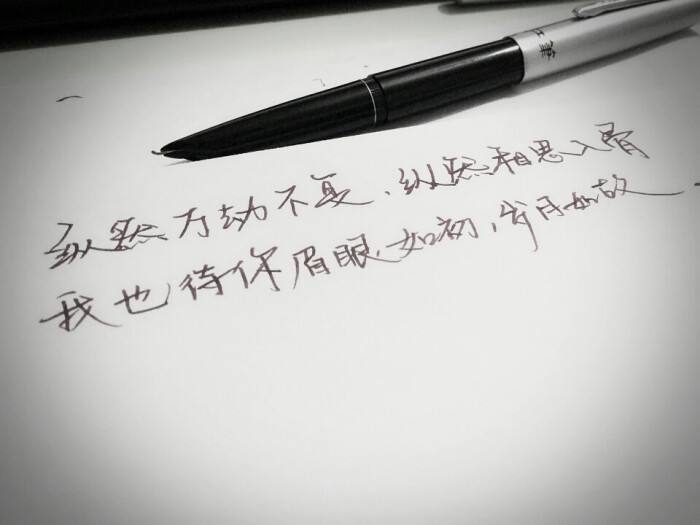 纵然万劫不复、纵然相思入骨
我也待你眉眼如初,岁月如故